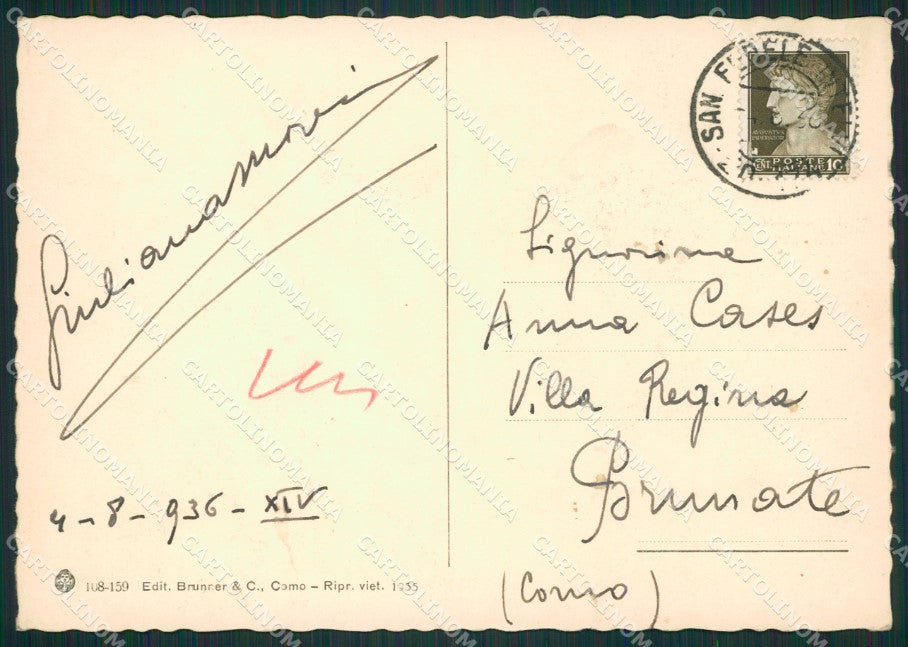 Giuliana
4-8-936-XIV
108-159 Edit. Brunner & C., Como – Ripr. viet. 1935
SAN FEDELE
POSTE
ITALIANE
CENT. 10
Signorina
Anna Cases
Villa Regina
Brunate
(Como)
CARTOLINOMANIA